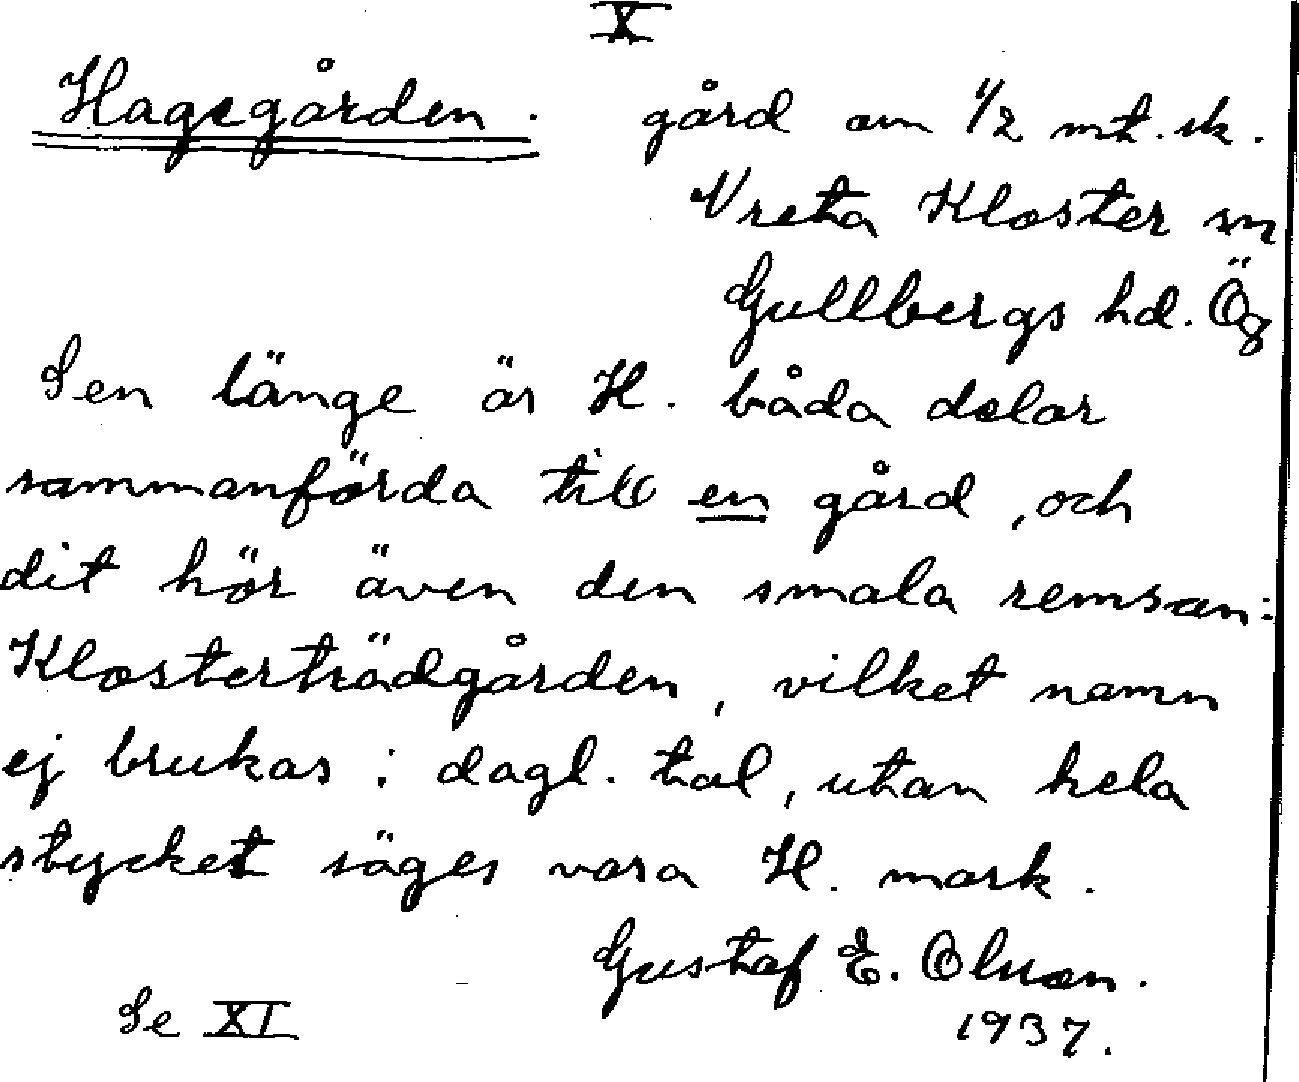 X
Hagegården. gård om 1/2 mt. sk.
Vreta Kloster sn
Gullbergs hd. Ög
Sen länge är H. båda delar
sammanförda till en gård, och
dit hör även den smala remsan:
Klosterträdgården, vilket namn
ej brukas i dagl. tal, utan hela
stycket säges vara H. mark.
Gustaf E. Olsson.
Se XI
1937.